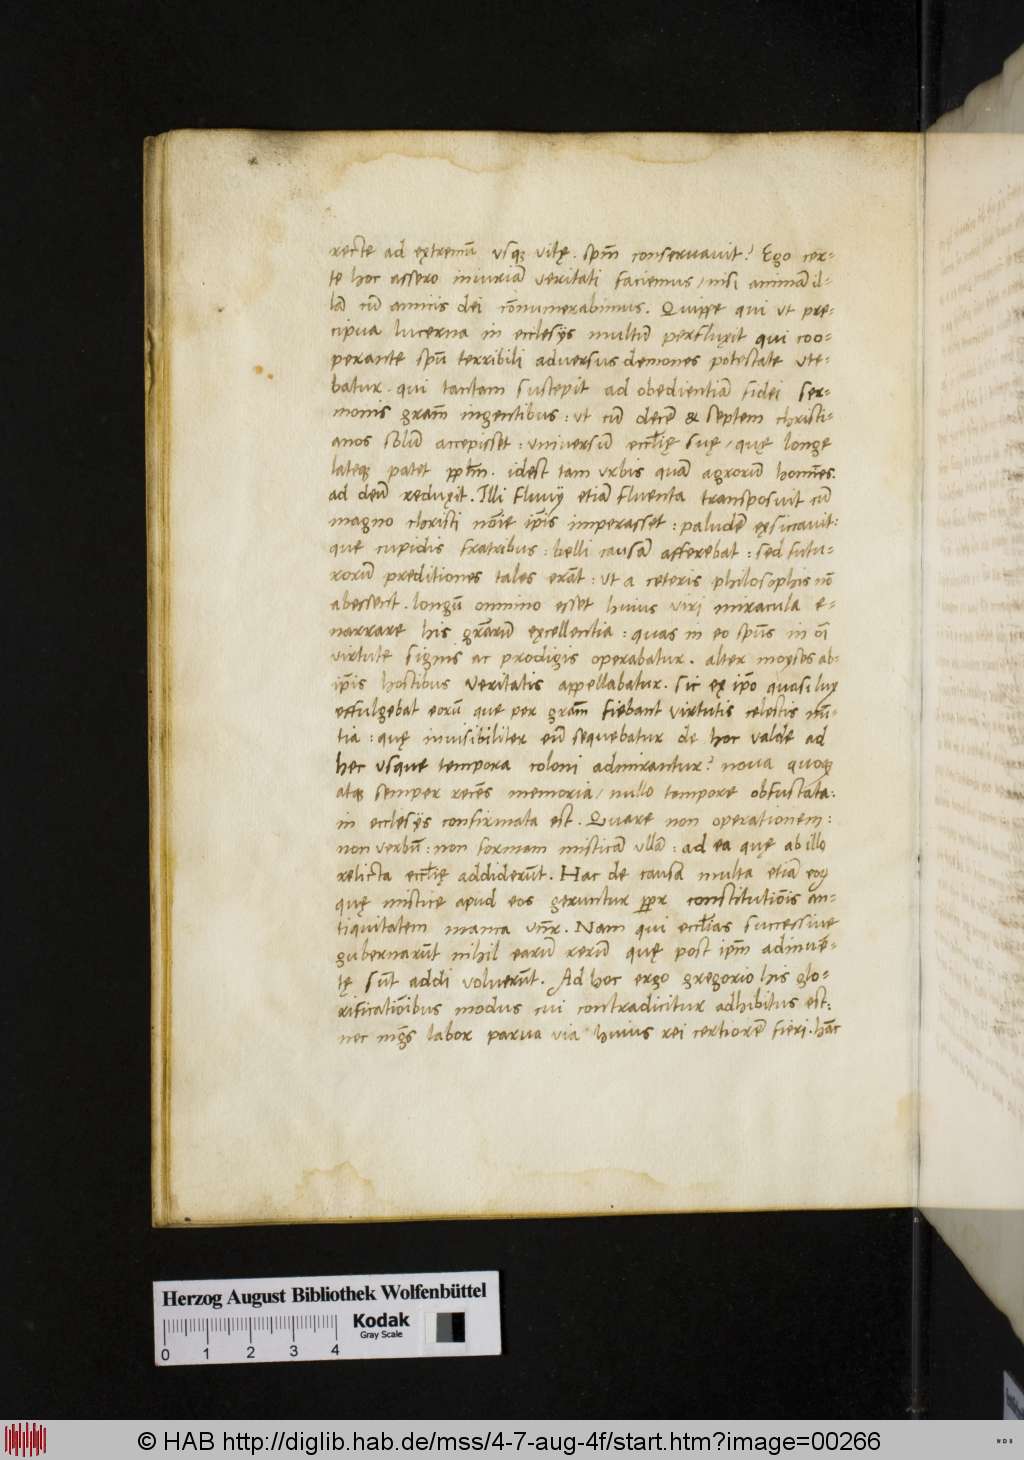 recte ad extremū vsq; vitę. spm̄ conseruauit? Ego cer-
te hoc assero iniuriā veritati faciemus / nisi animā il-
lā cū amicis dei cōnumerabimus. Quippe qui vt pre-
cipua lucerna in ecclesijs multū perfluxit qui coo-
perante spū terribili aduersus demones potestate vte-
batur. qui tantam suscepit ad obedientiā fidei ser-
monis gram̄ in gentibus: vt cū decē & septem christi-
anos solū accepisset: vniuersū eccl̄ię suę / quę longe
lateq; patet pplm̄. idest tam vrbis quā agrorū homīes.
ad deū reduxit. Illi fluuij etiā fluenta transposuit cū
magno christi nōie ip̄is imperasset: paludē exsiccauit:
que cupidis fratribus: belli causā afferebat: sed futu-
rorū preditiones tales erāt: vt a ceteris philosophis nō
abessent. longū omnino esset huius viri miracula e-
narrare his gr̄arū excellentia: quas in eo spūs in oī
virtute signis ac prodigis operabatur. alter moyses ab-
ip̄is hostibus veritatis appellabatur. sic ex ip̄o quasi lux
effulgebat eorū que per gram̄ fiebant virtutis celestis nū-
tia: quę inuisibiliter eū sequebatur de hoc valde ad
hec vsque tempora coloni admirantur? noua quoq;
atq; semper recēs memoria / nullo tempore obfuscata:
in ecclesijs confirmata est. Quare non operationem:
non verbū: non formam misticā vllā: ad ea quę ab illo
relicta eccl̄ię addiderūt. Hac de causa multa etiā eoꝝ
quę mistice apud eos geruntur ppr constitutiōis an-
tiquitatem manca vn̄r. Nam qui eccl̄ias successiue
gubernarūt nihil earū rerū quę post ip̄m adinuē-
tę sūt addi voluerūt. Ad hoc ergo gregorio his glo-
rificatiōibus modus cui contradicitur adhibitus est:
nec mḡs labor parua via huius rei certiorē fieri. hāc
Herzog August Bibliothek Wolfenbüttel
Kodak
Gray Scale
0 1 2 3 4
© HAB http://diglib.hab.de/mss/4-7-aug-4f/start.htm?image=00266